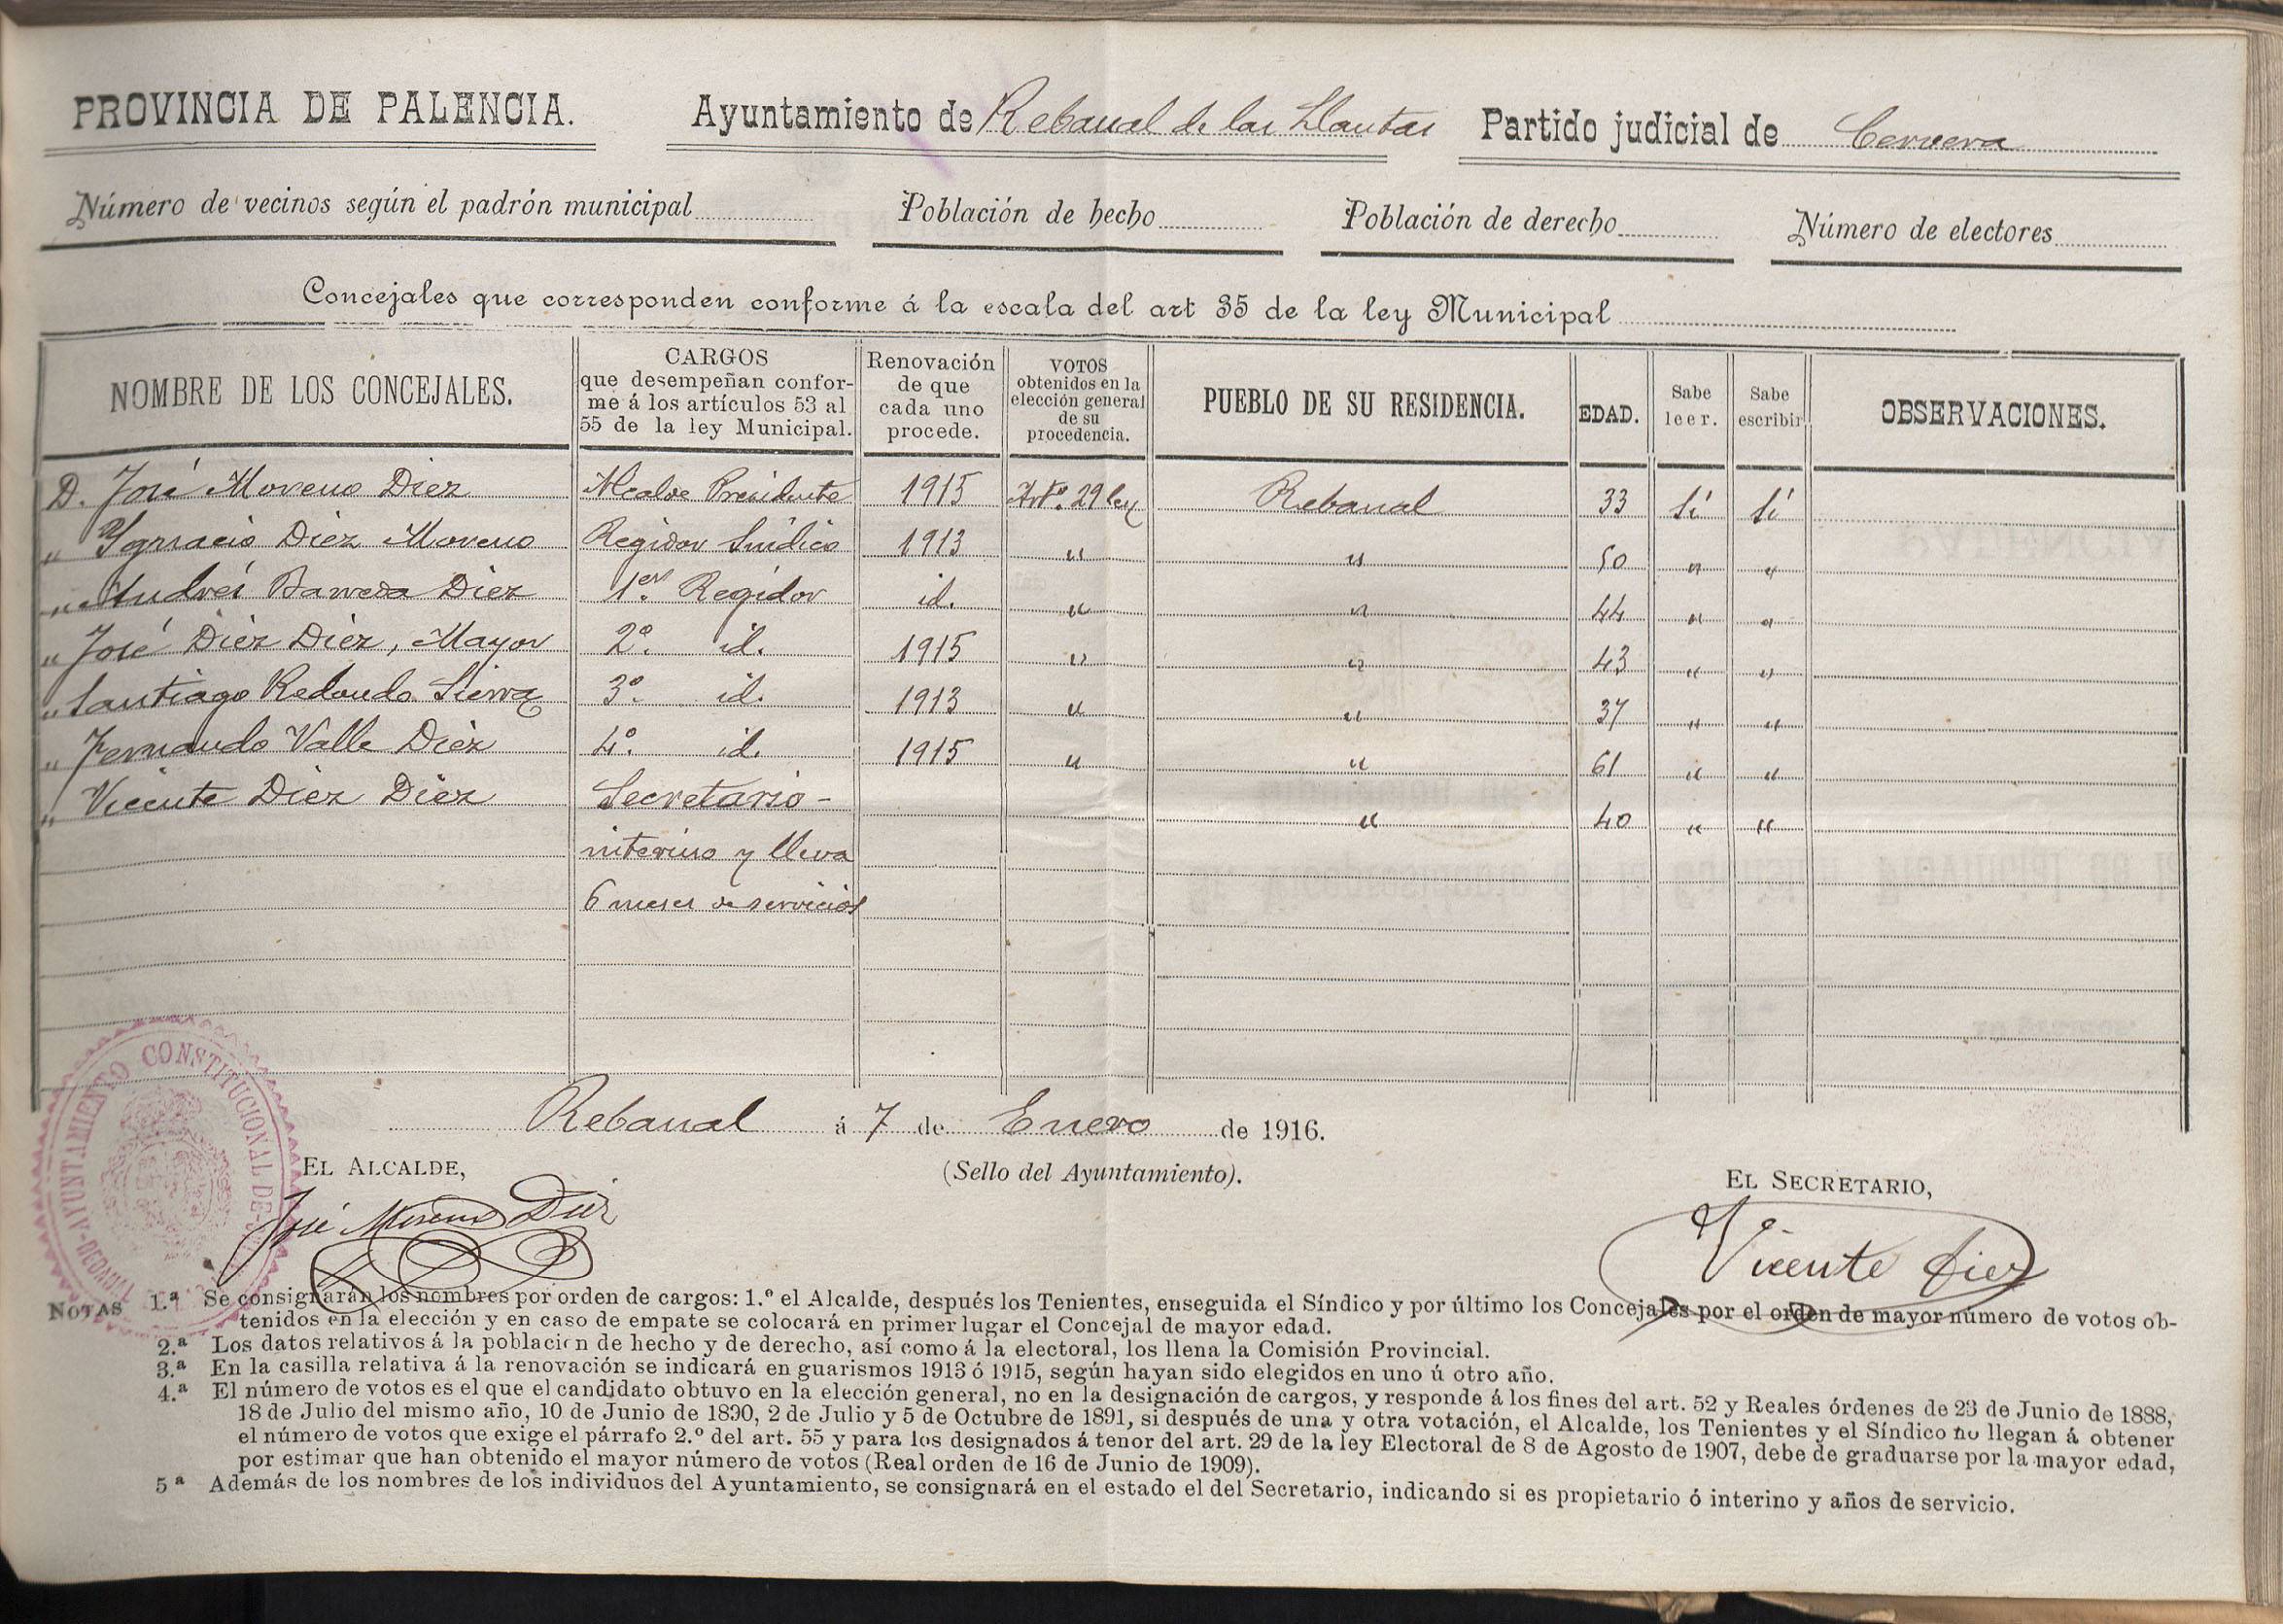 PROVINCIA DE PALENCIA. Ayuntamiento de Rebanal de las Llantas Partido judicial de Cervera
Número de vecinos según el padrón municipal Población de hecho Población de derecho Número de electores
Concejales que corresponden conforme á la escala del art 35 de la ley Municipal
NOMBRE DE LOS CONCEJALES. CARGOS que desempeñan confor-me á los artículos 53 al 55 de la ley Municipal. Renovación de que cada uno procede. VOTOS obtenidos en la elección general de su procedencia. PUEBLO DE SU RESIDENCIA. EDAD. Sabe leer. Sabe escribir OBSERVACIONES.
D. José Moreno Diez Alcalde Presidente 1915 Artº. 29 ley Rebanal 33 Sí Sí
" Ygnacio Diez Moreno Regidor Sindico 1913 " " 50 " "
" Andrés Barreda Diez 1er. Regidor id. " " 44 " "
" José Diez Diez, Mayor 2º. id. 1915 " " 43 " "
" Santiago Redondo Sierra 3º. id. 1913 " " 37 " "
" Fernando Valle Diez 4º. id. 1915 " " 61 " "
" Vicente Diez Diez Secretario - " 40 " "
interino y lleva
6 meses de servicios
Rebanal á 7 de Enero de 1916.
EL ALCALDE, (Sello del Ayuntamiento). EL SECRETARIO,
José Moreno Diez Vicente Diez
AYUNTAMIENTO CONSTITUCIONAL DE
NOTAS 1.ª Se consignarán los nombres por orden de cargos: 1.º el Alcalde, después los Tenientes, enseguida el Síndico y por último los Concejales por el orden de mayor número de votos ob-
tenidos en la elección y en caso de empate se colocará en primer lugar el Concejal de mayor edad.
2.ª Los datos relativos á la población de hecho y de derecho, así como á la electoral, los llena la Comisión Provincial.
3.ª En la casilla relativa á la renovación se indicará en guarismos 1913 ó 1915, según hayan sido elegidos en uno ú otro año.
4.ª El número de votos es el que el candidato obtuvo en la elección general, no en la designación de cargos, y responde á los fines del art. 52 y Reales órdenes de 23 de Junio de 1888,
18 de Julio del mismo año, 10 de Junio de 1890, 2 de Julio y 5 de Octubre de 1891, si después de una y otra votación, el Alcalde, los Tenientes y el Síndico no llegan á obtener
el número de votos que exige el párrafo 2.º del art. 55 y para los designados á tenor del art. 29 de la ley Electoral de 8 de Agosto de 1907, debe de graduarse por la mayor edad,
por estimar que han obtenido el mayor número de votos (Real orden de 16 de Junio de 1909).
5ª Además de los nombres de los individuos del Ayuntamiento, se consignará en el estado el del Secretario, indicando si es propietario ó interino y años de servicio.